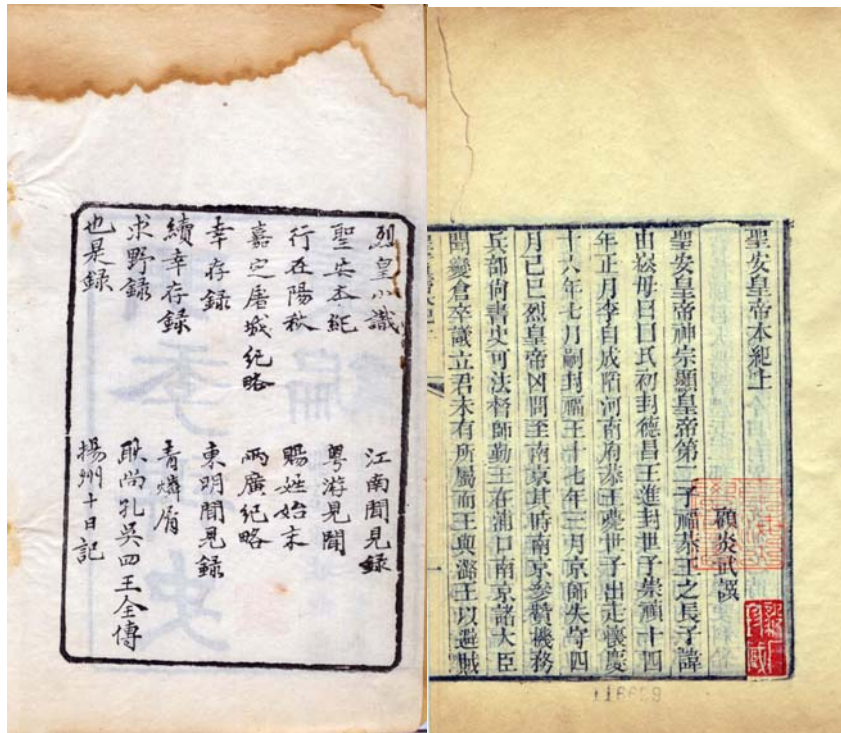 烈皇小識
聖安本紀
行在陽秋
嘉定屠城紀略
幸存録
續幸存録
求野録
也是録
江南聞見録
粵游見聞
賜姓始末
兩廣紀略
東明聞見録
青燐屑
耿尚孔吳四王全傳
揚州十日記
聖安皇帝本紀上
顧炎武譔
聖安皇帝神宗顯皇帝第二子福恭王之長子諱
由崧母曰田氏初封德昌王進封世子崇禎十四
年正月李自成陷河南府恭王薨世子出走懷慶
十六年七月嗣封福王十七年三月京師失守四
月己巳烈皇帝凶問至南京其時南京參贊機務
兵部尚書史可法督師勤王在浦口南京諸大臣
聞變倉卒議立君未有所屬而王與潞王以避賊
一
116609